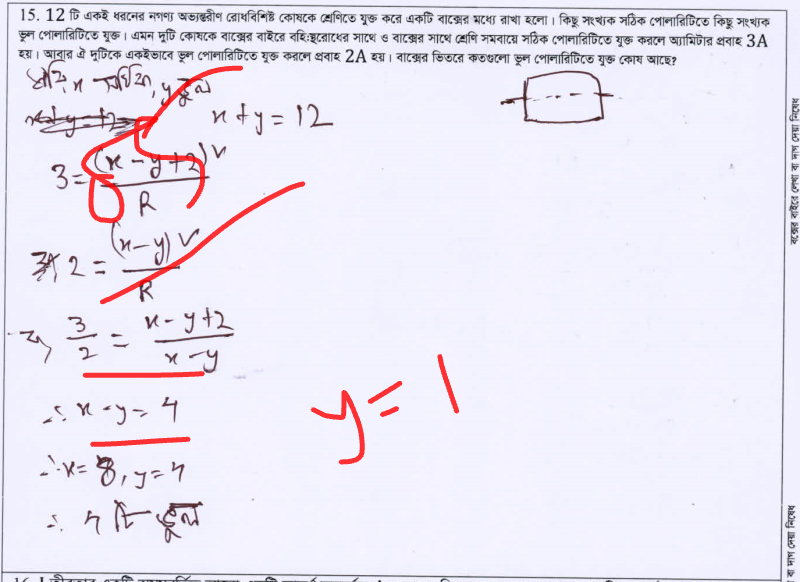 15. 12 টি একই ধরনের নগণ্য অভ্যন্তরীণ রোধবিশিষ্ট কোষকে শ্রেণিতে যুক্ত করে একটি বাক্সের মধ্যে রাখা হলো। কিছু সংখ্যক সঠিক পোলারিটিতে কিছু সংখ্যক
ভুল পোলারিটিতে যুক্ত। এমন দুটি কোষকে বাক্সের বাইরে বহিঃস্থরোধের সাথে ও বাক্সের সাথে শ্রেণি সমবায়ে সঠিক পোলারিটিতে যুক্ত করলে অ্যামিটার প্রবাহ 3A
হয়। আবার ঐ দুটিকে একইভাবে ভুল পোলারিটিতে যুক্ত করলে প্রবাহ 2A হয়। বাক্সের ভিতরে কতগুলো ভুল পোলারিটিতে যুক্ত কোষ আছে?
ধরি, x সঠিক, y ভুল
x + y = 12
x + y = 12
3 = (x - y + 2) V / R
2 = (x - y) V / R
⇒ 3/2 = x - y + 2 / x - y
∴ x - y = 4
y = 1
∴ x = 8, y = 4
∴ 4 টি ভুল
বক্সের বাইরে লেখা বা দাগ দেয়া নিষেধ
বা দাগ দেয়া নিষেধ